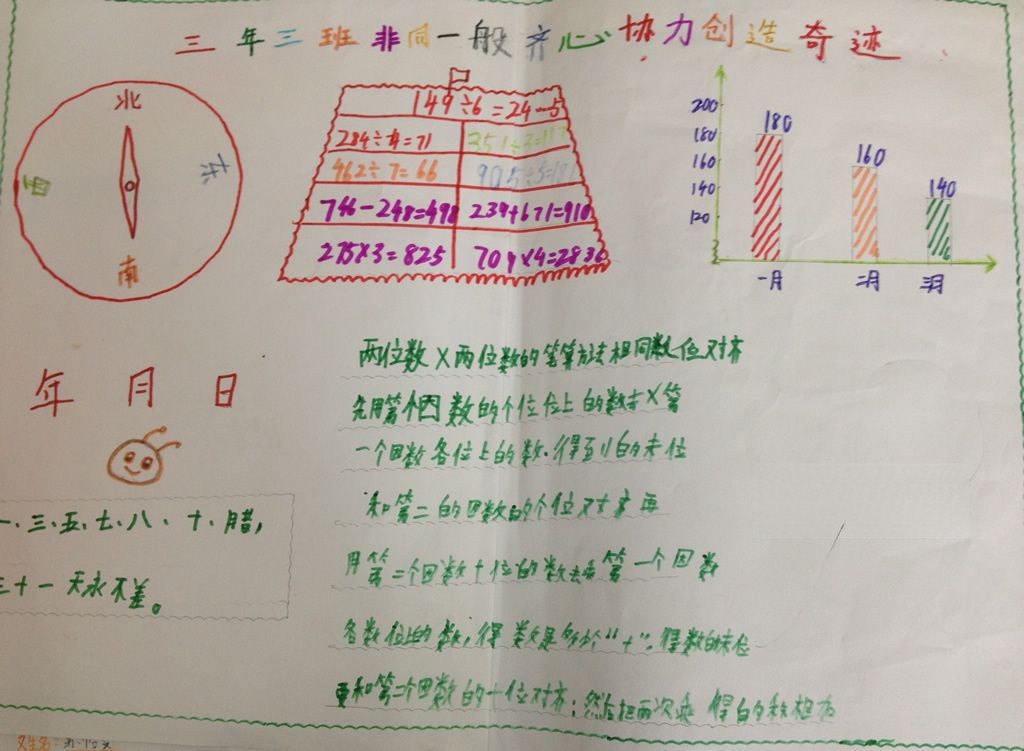 三年三班非同一般齐心协力创造奇迹
北
西
东
南
149÷6=24…5
284÷4=71
351÷3=117
462÷7=66
905÷5=181
746-248=498
239+671=910
275×3=825
709×4=2836
200
180
160
140
120
180
160
140
一月
二月
三月
年 月 日
一、三、五、七、八、十、腊,
三十一天永不差。
两位数×两位数的笔算方法相同数位对齐
先用第个因数的个位位上的数去×第
一个因数各位上的数.得到的末位
和第二的因数的个位对齐再
用第二个因数十位的数去乘第一个因数
各数位上的数,得数是多少个“十”.得数的末位
要和第二个因数的十位对齐;然后把两次乘得的积相加